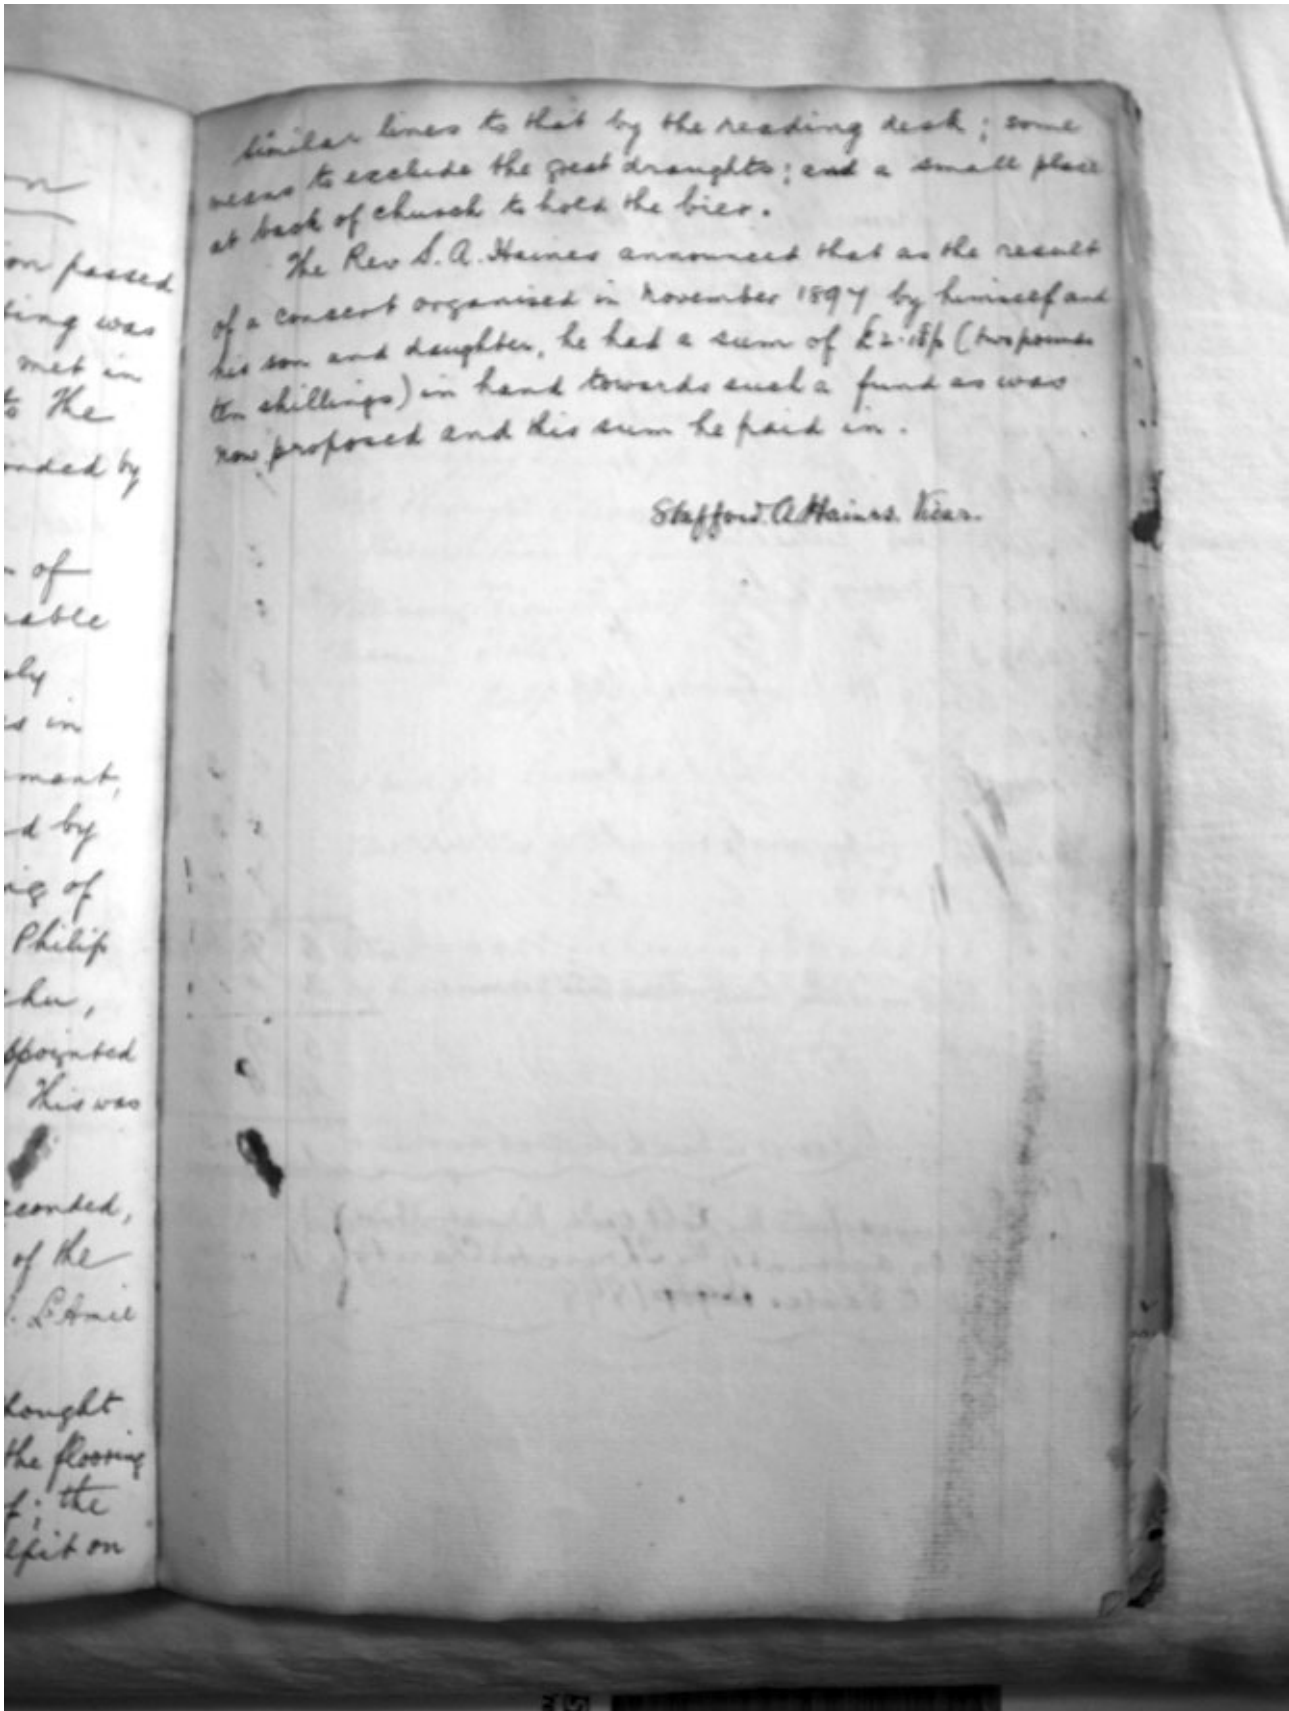 on passed
ting was
met in
to the
onded by
of
able
ly
s in
ment,
d by
ig of
Philip
chu,
ppointed
This was
econded,
of the
hought
the flooring
f; the
lpit on
similar lines to that by the reading desk; some
means to exclude the great draughts; and a small place
at back of church to hold the bier.
The Rev S. A. Haines announced that as the result
of a concert organised in November 1897 by himself and
his son and daughter, he had a sum of (two pounds
ten shillings) in hand towards such a fund as was
now proposed and this sum he paid in.
Stafford. A Haines. Vicar.